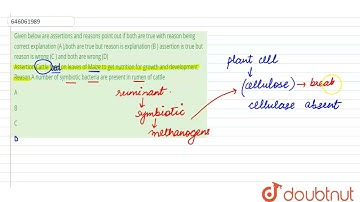 646061989
Given below are assertions and reasons point out if both are true with reason being
correct explanation (A ),both are true but reason is explanation (B ) assertion is true but
reason is wrong (C ) and both are wrong (D)
Assertion Cattle feed on leaves of Maize to get nutrition for growth and development
Reason A number of symbiotic bacteria are present in rumen of cattle
A
B
C
D
ruminant.
symbiotic
methanogens
plant cell
(cellulose) → break
cellulase absent
doubtnut